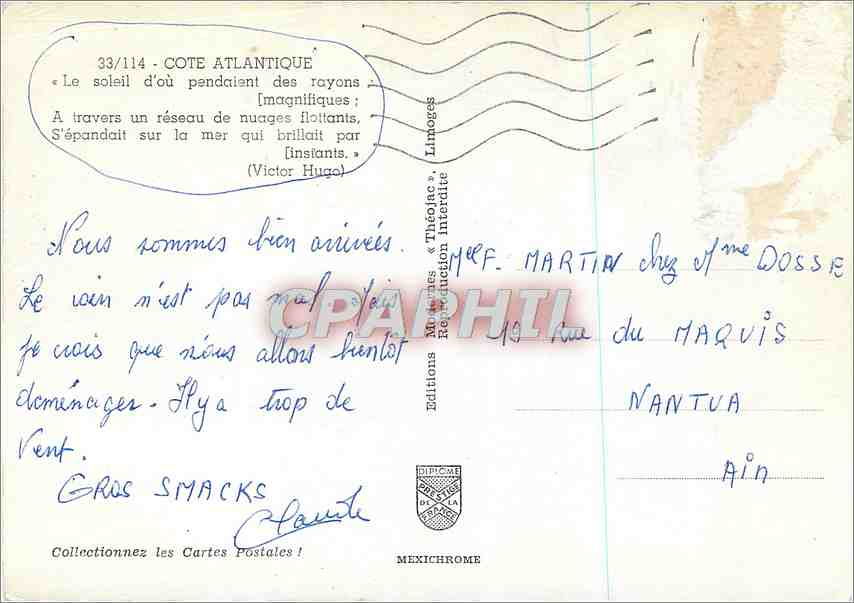 33/114 - COTE ATLANTIQUE
« Le soleil d'où pendaient des rayons
[magnifiques ;
A travers un réseau de nuages flottants,
S'épandait sur la mer qui brillait par
[instants. »
(Victor Hugo)
Nous sommes bien arrivées.
Le coin n'est pas mal. Mais
je crois que nous allons bientôt
déménager. Il y a trop de
vent.
GROS SMACKS
Claude
Collectionnez les Cartes Postales !
Editions Modernes « Théojac », Limoges
Reproduction Interdite
CPAPHIL
Mel F. MARTIN chez Mme DOSSE
19 Rue du MAQUIS
NANTUA
Ain
DIPLOME
PRESTIGE
DE LA
FRANCE
MEXICHROME